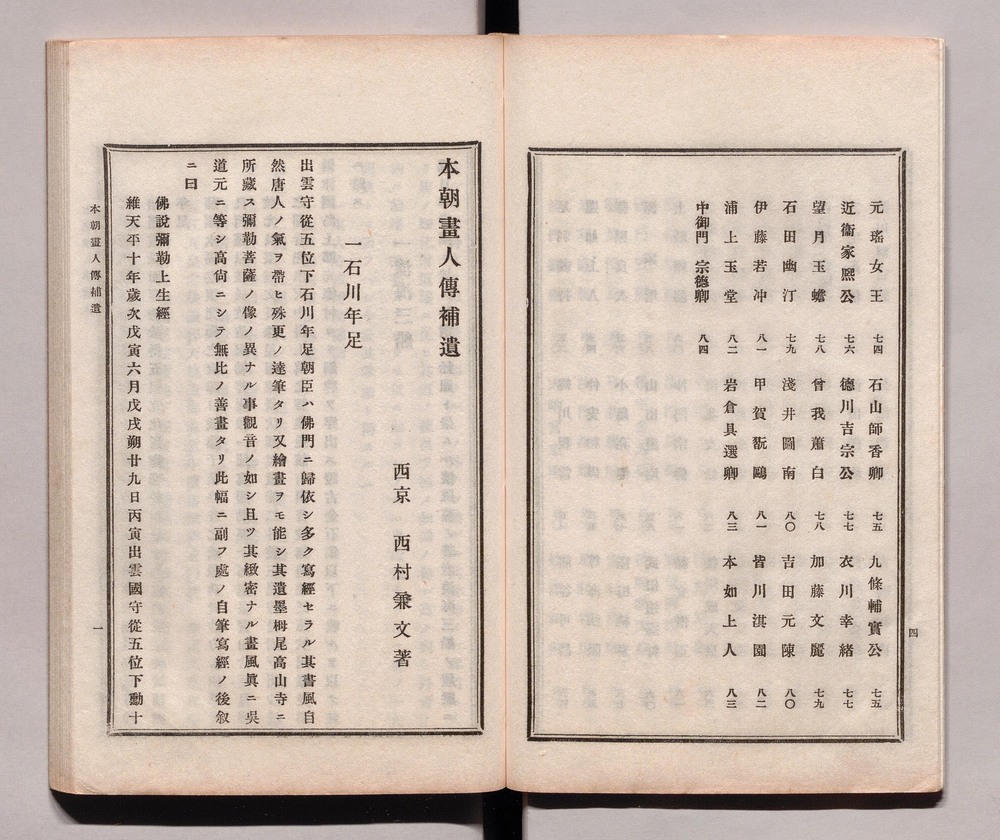 元瑤女王 七四 石山師香卿 七五 九條輔實公 七五
近衞家熈公 七六 德川吉宗公 七七 衣川幸緒 七七
望月玉蟾 七八 曾我蕭白 七八 加藤文麗 七九
石田幽汀 七九 淺井圖南 八〇 吉田元陳 八〇
伊藤若冲 八一 甲賀翫鷗 八一 皆川淇園 八二
浦上玉堂 八二 岩倉具選卿 八三 本如上人 八三
中御門宗德卿 八四
四
本朝畫人傳補遺
西京 西村兼文著
一石川年足
出雲守從五位下石川年足朝臣ハ佛門ニ歸依シ多ク寫經セラル其書風自
然唐人ノ氣ヲ帶ヒ殊更ノ達筆タリ又繪畫ヲモ能シ其遺墨栂尾高山寺ニ
所藏ス彌勒菩薩ノ像ノ異ナル事觀音ノ如シ且ツ其緻密ナル畫風眞ニ吳
道元ニ等シ高尙ニシテ無比ノ善畫タリ此幅ニ副フ處ノ自筆寫經ノ後叙
ニ曰
佛說彌勒上生經
維天平十年歲次戊寅六月戊戌朔廿九日丙寅出雲國守從五位下勳十
本朝畫人傳補遺
一